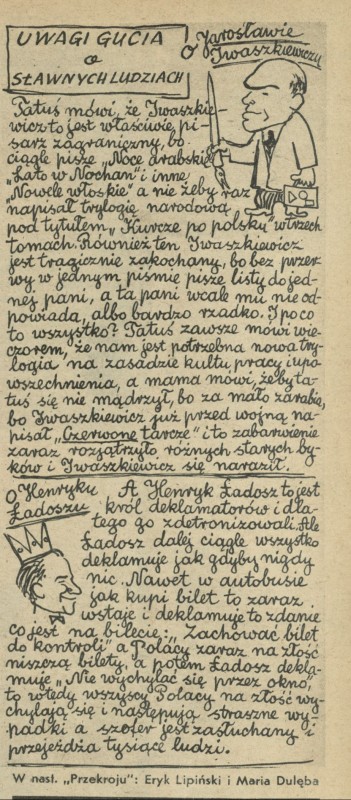 UWAGI GUCIA
o
SŁAWNYCH LUDZIACH
O Jarosławie
Iwaszkiewiczu
Tatuś mówi, że Iwaszkie-
wicz to jest właściwie pi-
sarz zagraniczny, bo
ciągle pisze „Noce arabskie”
„Lato w Nochan” i inne
„Nowele włoskie” a nie żeby raz
napisał trylogię narodową
pod tytułem „Kurcze po polsku” w trzech
tomach. Również ten Iwaszkiewicz
jest tragicznie zakochany, bo bez przer
wy w jednym piśmie pisze listy do jed-
nej pani, a ta pani wcale mu nie od-
powiada, albo bardzo rzadko. I po co
to wszystko? Tatuś zawsze mówi wie-
czorem, że nam jest potrzebna nowa try-
logia na zasadzie kultu pracy i upo
wszechnienia, a mama mówi, żeby ta-
tuś się nie mądrzył, bo za mało zarabia,
bo Iwaszkiewicz już przed wojną na-
pisał „Czerwone tarcze” i to zabarwienie
zaraz rozjątrzyło różnych starych by-
ków i Iwaszkiewicz się naraził.
O Henryku
Ładoszu
A Henryk Ładosz to jest
król deklamatorów i dla-
tego go zdetronizowali. Ale
Ładosz dalej ciągle wszystko
deklamuje jak gdyby nigdy
nic. Nawet w autobusie
jak kupi bilet to zaraz
wstaje i deklamuje to zdanie
co jest na bilecie: „Zachować bilet
do kontroli” a Polacy zaraz na złość
niszczą bilety, a potem Ładosz dekla-
muje „Nie wychylać się przez okno”,
to wtedy wszyscy Polacy na złość wy-
chylają się i następują straszne wy-
padki a szofer jest zasłuchany i
przejeżdża tysiące ludzi.
W nast. „Przekroju”: Eryk Lipiński i Maria Dulęba